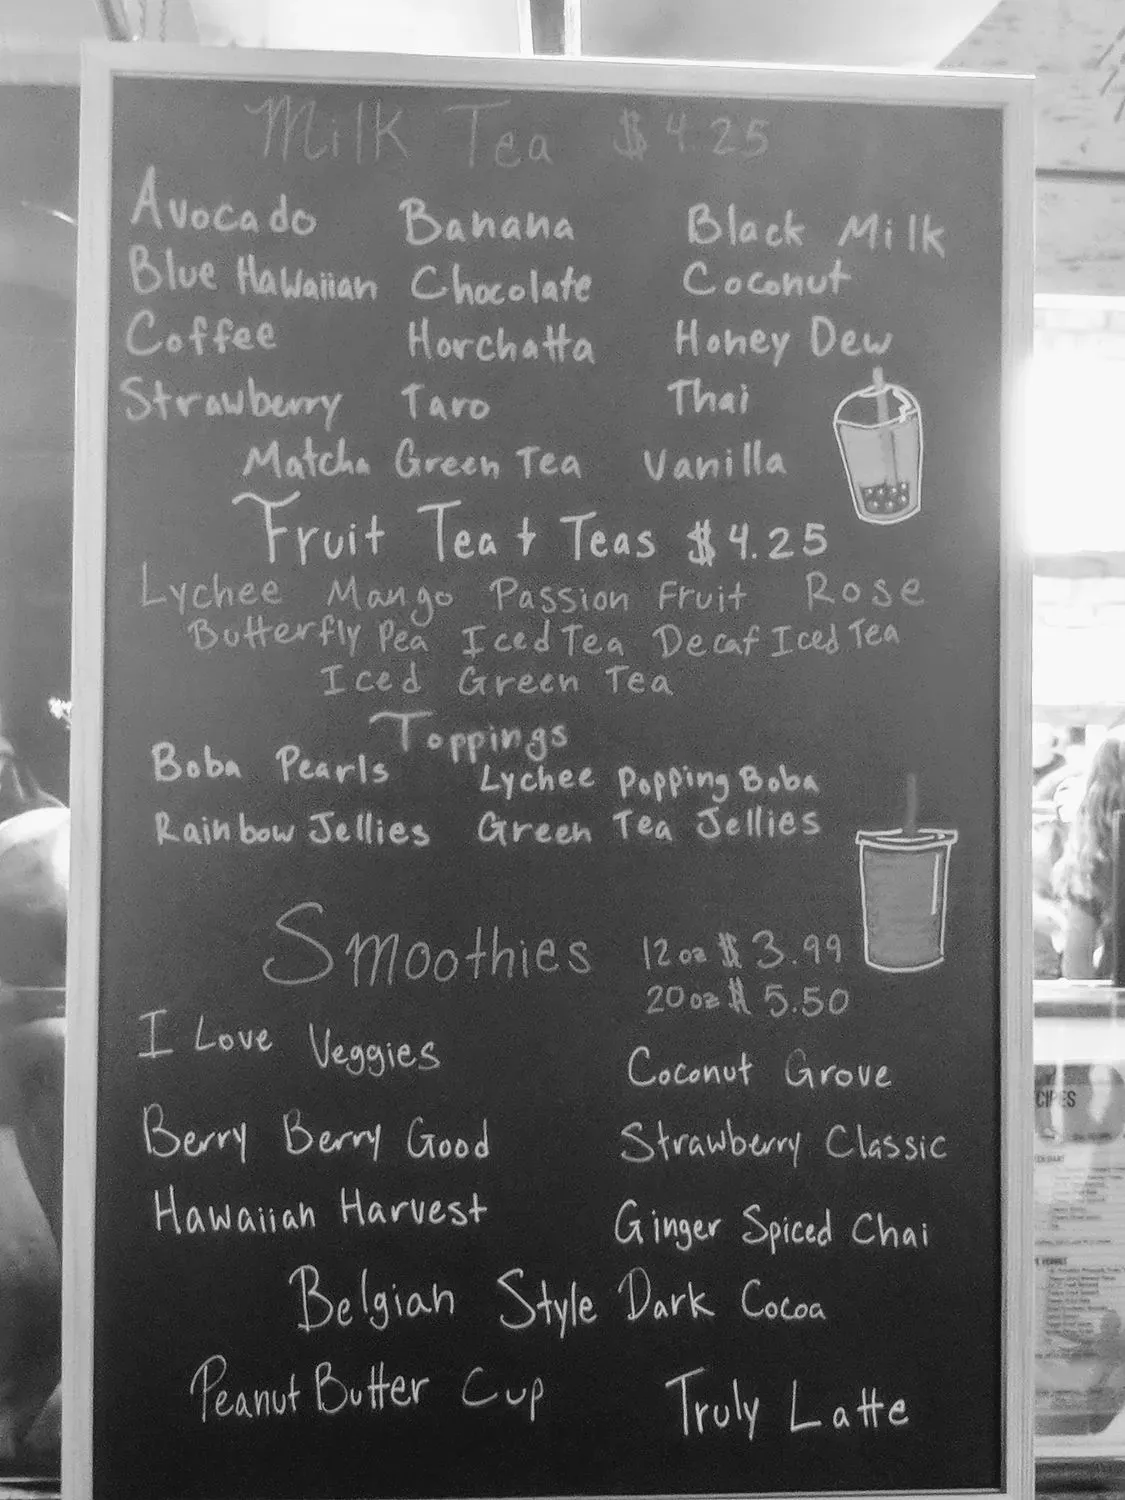 Milk Tea $4.25
Avocado Banana Black Milk
Blue Hawaiian Chocolate Coconut
Coffee Horchatta Honey Dew
Strawberry Taro Thai
Matcha Green Tea Vanilla
Fruit Tea + Teas $4.25
Lychee Mango Passion Fruit Rose
Butterfly Pea Iced Tea Decaf Iced Tea
Iced Green Tea
Toppings
Boba Pearls Lychee Popping Boba
Rainbow Jellies Green Tea Jellies
Smoothies 12 oz $3.99
20 oz $5.50
I Love Veggies Coconut Grove
Berry Berry Good Strawberry Classic
Hawaiian Harvest Ginger Spiced Chai
Belgian Style Dark Cocoa
Peanut Butter Cup Truly Latte